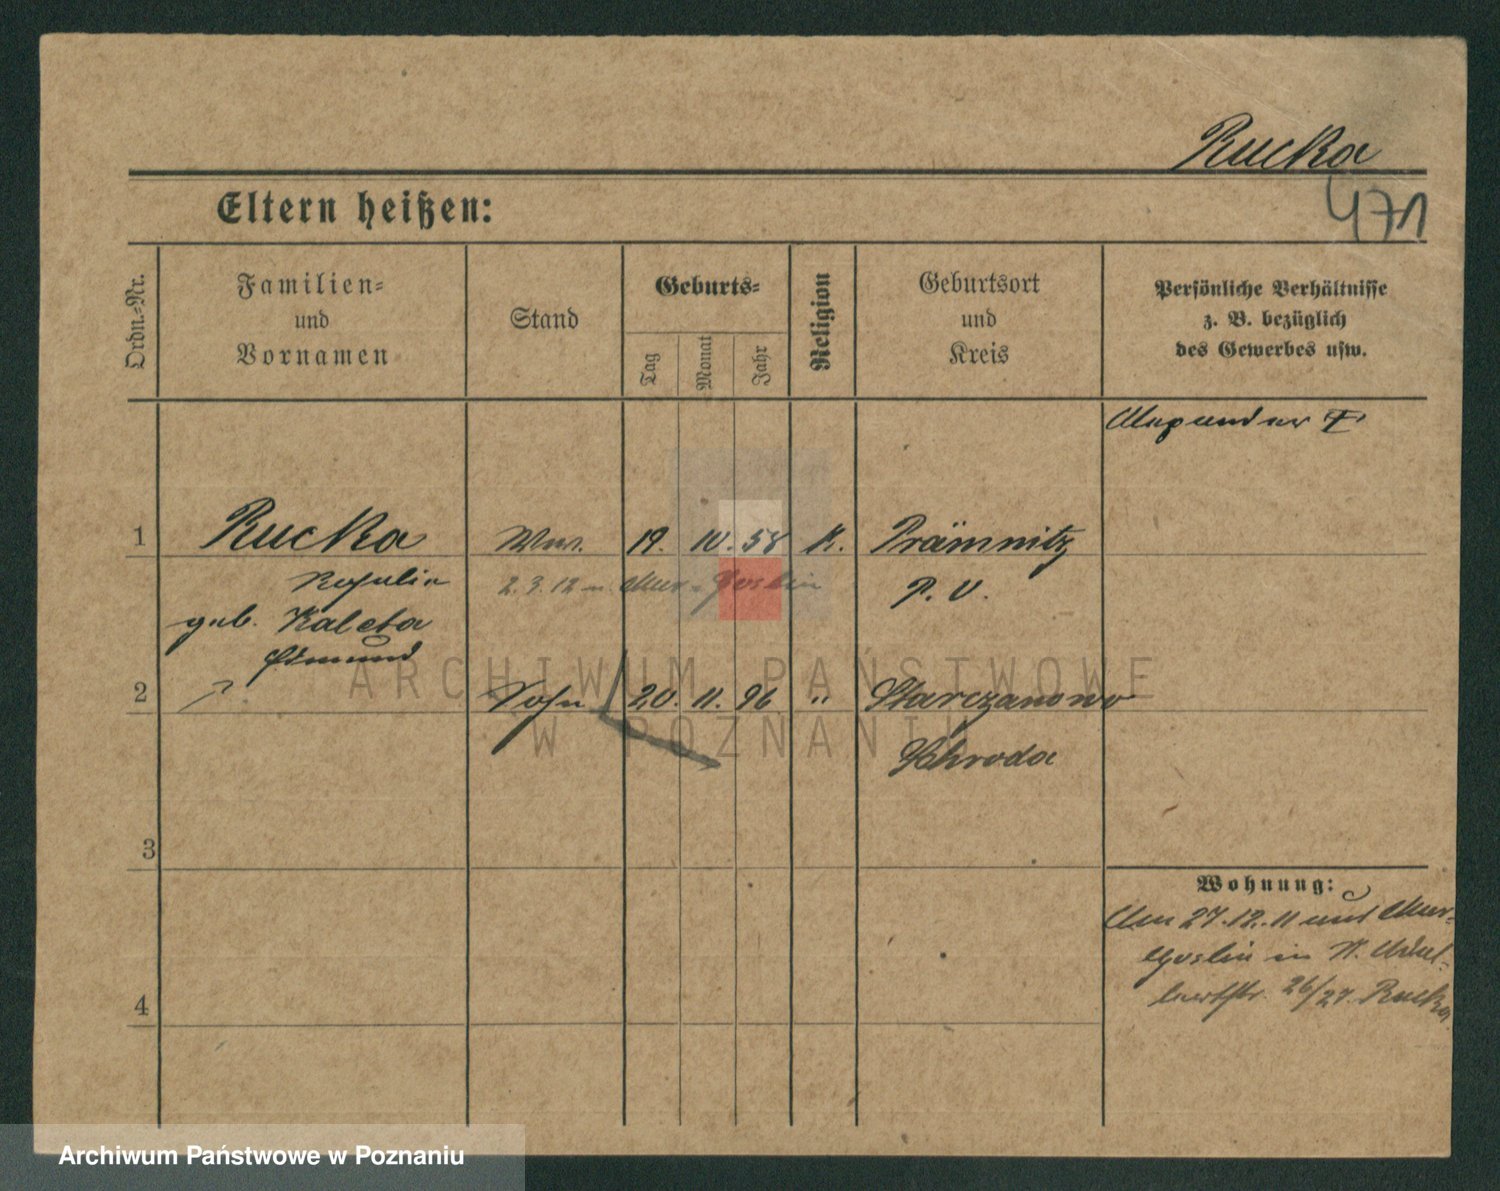 Rucka
471
Eltern heißen:
Ordn.-Nr.
Familien-
und
Vornamen
Stand
Geburts-
Tag
Monat
Jahr
Religion
Geburtsort
und
Kreis
Persönliche Verhältnisse
z. B. bezüglich
des Gewerbes usw.
1 Rucka Ww. 19. 10. 58 K. Prämnitz
2.3.12 n. Mur. Goslin
P. O.
geb. Kaleta
Edmund
2 Sohn 20. 11. 96 " Starczanowo
Schroda
3
Wohnung:
27.12.11 Mur-
Goslin in
26/27. Rucka
4
ARCHIWUM PAŃSTWOWE
W POZNANIU
Archiwum Państwowe w Poznaniu